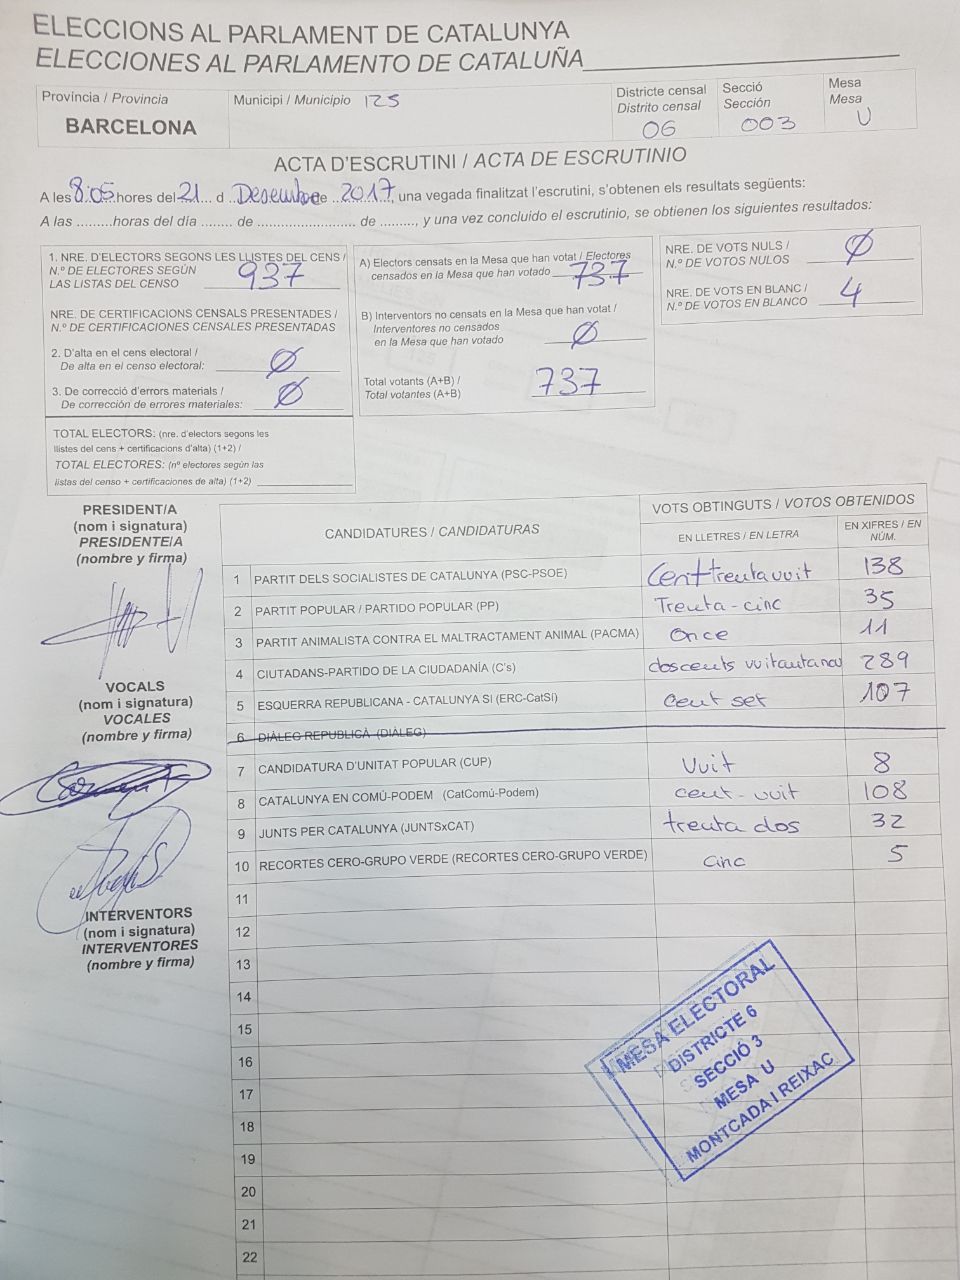 ELECCIONS AL PARLAMENT DE CATALUNYA
ELECCIONES AL PARLAMENTO DE CATALUÑA
Província / Provincia
BARCELONA
Municipi / Municipio 125
Districte censal
Distrito censal
06
Secció
Sección
003
Mesa
Mesa
U
ACTA D'ESCRUTINI / ACTA DE ESCRUTINIO
A les 8:05 hores del 21 d Desembre de 2017, una vegada finalitzat l'escrutini, s'obtenen els resultats següents:
A las .........horas del día ........ de ........................... de .........., y una vez concluido el escrutinio, se obtienen los siguientes resultados:
1. NRE. D'ELECTORS SEGONS LES LLISTES DEL CENS /
N.º DE ELECTORES SEGÚN
LAS LISTAS DEL CENSO 937
NRE. DE CERTIFICACIONS CENSALS PRESENTADES /
N.º DE CERTIFICACIONES CENSALES PRESENTADAS
2. D'alta en el cens electoral /
De alta en el censo electoral: Ø
3. De correcció d'errors materials /
De corrección de errores materiales: Ø
TOTAL ELECTORS: (nre. d'electors segons les
llistes del cens + certificacions d'alta) (1+2) /
TOTAL ELECTORES: (nº electores según las
listas del censo + certificaciones de alta) (1+2)
A) Electors censats en la Mesa que han votat / Electores
censados en la Mesa que han votado 737
B) Interventors no censats en la Mesa que han votat /
Interventores no censados
en la Mesa que han votado Ø
Total votants (A+B) /
Total votantes (A+B) 737
NRE. DE VOTS NULS /
N.º DE VOTOS NULOS Ø
NRE. DE VOTS EN BLANC /
N.º DE VOTOS EN BLANCO 4
PRESIDENT/A
(nom i signatura)
PRESIDENTE/A
(nombre y firma)
VOCALS
(nom i signatura)
VOCALES
(nombre y firma)
INTERVENTORS
(nom i signatura)
INTERVENTORES
(nombre y firma)
CANDIDATURES / CANDIDATURAS
VOTS OBTINGUTS / VOTOS OBTENIDOS
EN LLETRES / EN LETRA
EN XIFRES / EN NÚM.
1 PARTIT DELS SOCIALISTES DE CATALUNYA (PSC-PSOE) Cent trenta vuit 138
2 PARTIT POPULAR / PARTIDO POPULAR (PP) Trenta-cinc 35
3 PARTIT ANIMALISTA CONTRA EL MALTRACTAMENT ANIMAL (PACMA) once 11
4 CIUTADANS-PARTIDO DE LA CIUDADANÍA (C's) doscents vuitantanou 289
5 ESQUERRA REPUBLICANA - CATALUNYA SI (ERC-CatSí) cent set 107
6 DIÀLEG REPUBLICÀ (DIÀLEG)
7 CANDIDATURA D'UNITAT POPULAR (CUP) Vuit 8
8 CATALUNYA EN COMÚ-PODEM (CatComú-Podem) cent-vuit 108
9 JUNTS PER CATALUNYA (JUNTSxCAT) trenta dos 32
10 RECORTES CERO-GRUPO VERDE (RECORTES CERO-GRUPO VERDE) cinc 5
11
12
13
14
15
16
17
18
19
20
21
22
MESA ELECTORAL
DISTRICTE 6
SECCIÓ 3
MESA U
MONTCADA I REIXAC